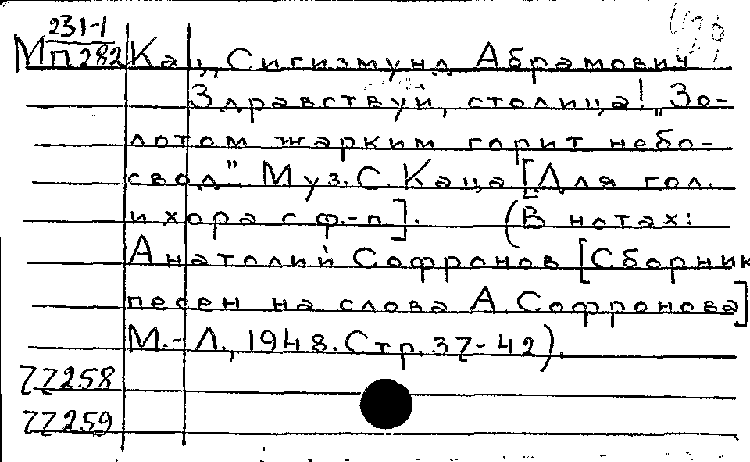 231-1
Мп282 Кац, Сигизмунд Абрамович
Здравствуй, столица! „Зо-
лотом жарким горит небо-
свод" Муз. С. Каца [Для гол.
и хора с ф.-п]. (В нотах:
Анатолий Софронов [Сборник
песен на слова А. Софронова]
М.-Л., 1948. Стр. 37-42).
77258
77259